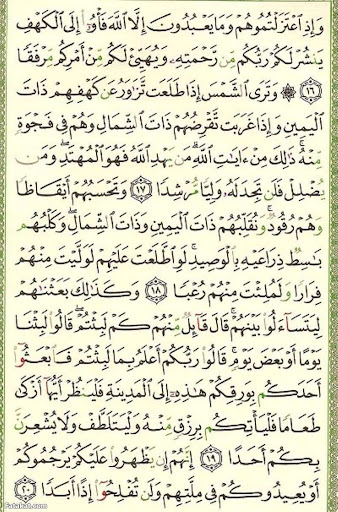 وَإِذِ ٱعْتَزَلْتُمُوهُمْ وَمَا يَعْبُدُونَ إِلَّا ٱللَّهَ فَأْوُۥٓا۟ إِلَى ٱلْكَهْفِ
يَنشُرْ لَكُمْ رَبُّكُم مِّن رَّحْمَتِهِۦ وَيُهَيِّئْ لَكُم مِّنْ أَمْرِكُم مِّرْفَقًا
﴿١٦﴾ ۞ وَتَرَى ٱلشَّمْسَ إِذَا طَلَعَت تَّزَٰوَرُ عَن كَهْفِهِمْ ذَاتَ
ٱلْيَمِينِ وَإِذَا غَرَبَت تَّقْرِضُهُمْ ذَاتَ ٱلشِّمَالِ وَهُمْ فِى فَجْوَةٍ
مِّنْهُ ۚ ذَٰلِكَ مِنْ ءَايَٰتِ ٱللَّهِ ۗ مَن يَهْدِ ٱللَّهُ فَهُوَ ٱلْمُهْتَدِ ۖ وَمَن
يُضْلِلْ فَلَن تَجِدَ لَهُۥ وَلِيًّا مُّرْشِدًا ﴿١٧﴾ وَتَحْسَبُهُمْ أَيْقَاظًا
وَهُمْ رُقُودٌ ۚ وَنُقَلِّبُهُمْ ذَاتَ ٱلْيَمِينِ وَذَاتَ ٱلشِّمَالِ ۖ وَكَلْبُهُم
بَٰسِطٌ ذِرَاعَيْهِ بِٱلْوَصِيدِ ۚ لَوِ ٱطَّلَعْتَ عَلَيْهِمْ لَوَلَّيْتَ مِنْهُمْ
فِرَارًا وَلَمُلِئْتَ مِنْهُمْ رُعْبًا ﴿١٨﴾ وَكَذَٰلِكَ بَعَثْنَٰهُمْ
لِيَتَسَآءَلُوا۟ بَيْنَهُمْ ۚ قَالَ قَآئِلٌ مِّنْهُمْ كَمْ لَبِثْتُمْ ۖ قَالُوا۟ لَبِثْنَا
يَوْمًا أَوْ بَعْضَ يَوْمٍ ۚ قَالُوا۟ رَبُّكُمْ أَعْلَمُ بِمَا لَبِثْتُمْ فَٱبْعَثُوٓا۟
أَحَدَكُم بِوَرِقِكُمْ هَٰذِهِۦٓ إِلَى ٱلْمَدِينَةِ فَلْيَنظُرْ أَيُّهَآ أَزْكَىٰ
طَعَامًا فَلْيَأْتِكُم بِرِزْقٍ مِّنْهُ وَلْيَتَلَطَّفْ وَلَا يُشْعِرَنَّ
بِكُمْ أَحَدًا ﴿١٩﴾ إِنَّهُمْ إِن يَظْهَرُوا۟ عَلَيْكُمْ يَرْجُمُوكُمْ
أَوْ يُعِيدُوكُمْ فِى مِلَّتِهِمْ وَلَن تُفْلِحُوٓا۟ إِذًا أَبَدًا ﴿٢٠﴾
Fatakat.com